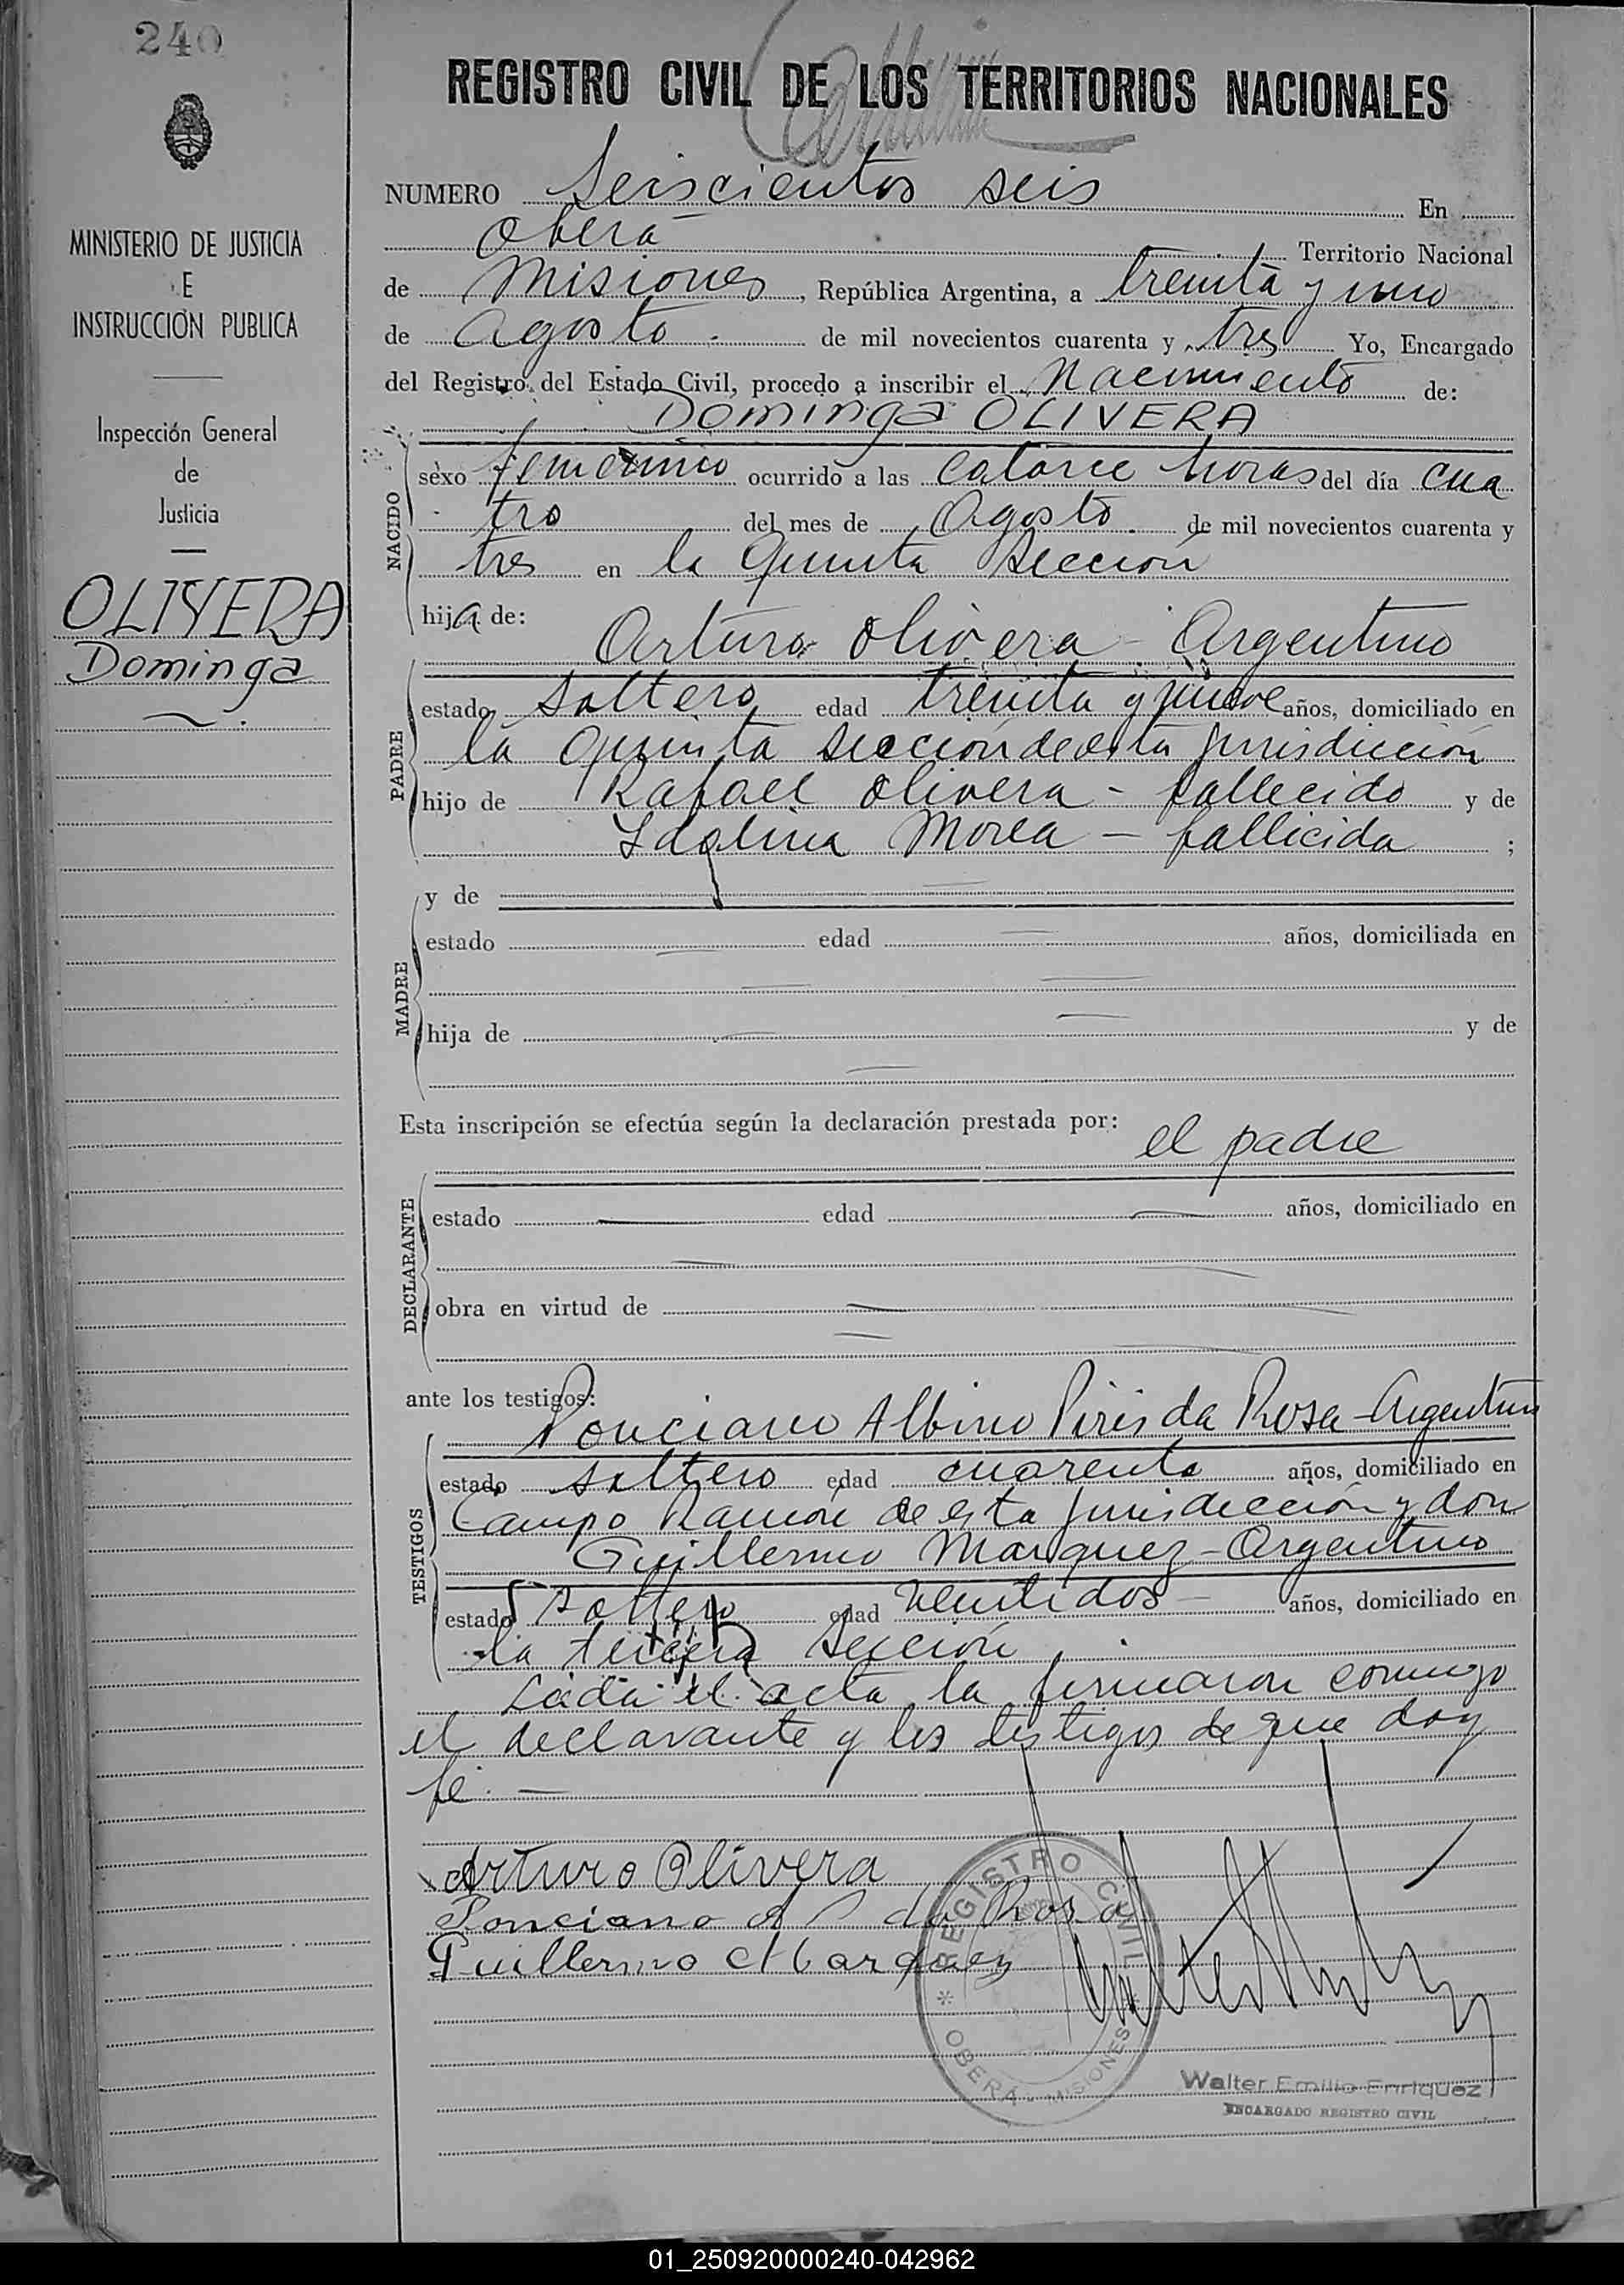 240
REGISTRO CIVIL DE LOS TERRITORIOS NACIONALES
MINISTERIO DE JUSTICIA
E
INSTRUCCIÓN PUBLICA
Inspección General
de
Justicia
OLIVERA
Dominga
NUMERO Seiscientos seis En
Oberá Territorio Nacional
de Misiones, República Argentina, a treinta y uno
de Agosto de mil novecientos cuarenta y tres Yo, Encargado
del Registro del Estado Civil, procedo a inscribir el Nacimiento de:
Dominga OLIVERA
NACIDO
sexo femenino ocurrido a las catorce horas del día cua
tro del mes de Agosto de mil novecientos cuarenta y
tres en la Quinta Sección
hija de:
Arturo Olivera - Argentino
PADRE
estado Soltero edad treinta y nueve años, domiciliado en
la Quinta sección de esta jurisdicción
hijo de Rafael Olivera - fallecido y de
Morea - fallicida ;
MADRE
y de
estado edad años, domiciliada en
hija de y de
Esta inscripción se efectúa según la declaración prestada por:
el padre
DECLARANTE
estado edad años, domiciliado en
obra en virtud de
ante los testigos:
Ponciano Albino Piris da Rosa - Argentino
TESTIGOS
estado soltero edad cuarenta años, domiciliado en
Campo Ramón de esta jurisdicción y don
Guillermo Marquez - Argentino
estado Soltero edad veintidos - años, domiciliado en
la tercera Sección
Leída el acta la firmaron conmigo
el declarante y los testigos de que doy
fé. —
Arturo Olivera
Ponciano A P da Rosa
Guillermo Marquez
REGISTRO CIVIL
* OBERÁ - MISIONES *
Walter Emilio Enriquez
ENCARGADO REGISTRO CIVIL
01_250920000240-042962